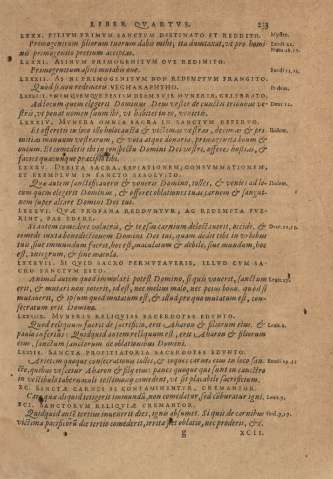 LIBER QUARTUS. 233
LXXX. FILIUM PRIMUM SANCTUM DESTINATO ET REDDITO.
Primogenitum filiorum tuorum dabis mihi, ita duntaxat, ut pro
mo primogenito pretium accipias.
LXXXI. ASINUM PRIMOGENITUM OVE REDIMITO.
Primogenitum asini mutabis ove.
LXXXII. ASINI PRIMOGENITUM NON REDEMPTUM FRANGITO.
Quod si non redemeris
Ad locum quem elegerit Dominus Deus vester de cunctis tribubus
stris, ut ponat nomen suum ibi, ut habitet in eo, venietis.
LXXXIV. MUNERA OMNIA SACRA IN SANCTUM DEFERTO.
Et offeretis in loco illo holocausta & victimas vestras, decimas & pri
mitias manuum vestrarum, & vota atque donaria, primogenita boum &
ovium. Et comedetis ibi in conspectu Domini Dei vestri,
LXXXV. DEBITA SACRA, EXPIATIONEM, CONSUMMATIONEM,
ET EXEMPLUM IN SANCTO RESOLVITO.
Quæ autem sanctificaveris & voveris Domino, tolles, & venies ad lo-
cum quem elegerit Dominus, & offeres oblationes tuas, carnem & sangui-
nem super altare Domini Dei tui.
LXXXVI. QUÆ PROFANA REDDUNTUR, AC REDEMPTA FUE-
RINT, FAS EDERE.
Si autem comedere volueris, & te esus carnium delectaverit, occide, &
comede iuxta benedictionem Domini Dei tui, quam dedit tibi in urbibus
tuis, sive immundum fuerit, hoc est, maculatum & debile, sive mundum, hoc
est, integrum, & sine macula.
LXXXVII. SI QUID SACRO PERMUTAVERIS, ILLUD CUM SA-
CRO SANCTUM ESTO.
Animal autem quod immolari potest Domino, si quis voverit, sanctum
erit, & mutari non poterit, id est, nec melius malo, nec peius bono. quod si
mutaverit, & ipsum quod mutatum est, & illud pro quo mutatum est, con-
secratum erit Domino.
LXXXVIII. MUNERIS RELIQUIAS SACERDOTES EDUNTO.
Quod reliquum fuerit de sacrificio, erit Aharon & filiorum eius, &
Quidquid autem reliquum est, erit Aharon & filiorum
eius, sanctum sanctorum de oblationibus Domini.
LXXXIX. SANCTA PROPITIATORIA SACERDOTES EDUNTO.
Arietem quoque consecrationis tolles, & coques carnes eius in loco san-
cto, quibus vescetur Aharon & filij eius: panes quoque qui sunt in canistro
in vestibulo tabernaculi testimonij comedent, ut sit placabile sacrificium.
XC. SANCTÆ CARNES SI CONTAMINENTUR, CREMANTOR.
Caro quæ aliquid tetigerit immundum, non comedatur, sed comburatur igni.
XCI. SANCTORUM RELIQUIÆ CREMANTOR.
Quidquid autem tertius invenerit dies, ignis absumet. Si quis de carnibus
victimæ pacificorum die tertio comederit, irrita fiet oblatio, nec proderit, &c.
g XCII.